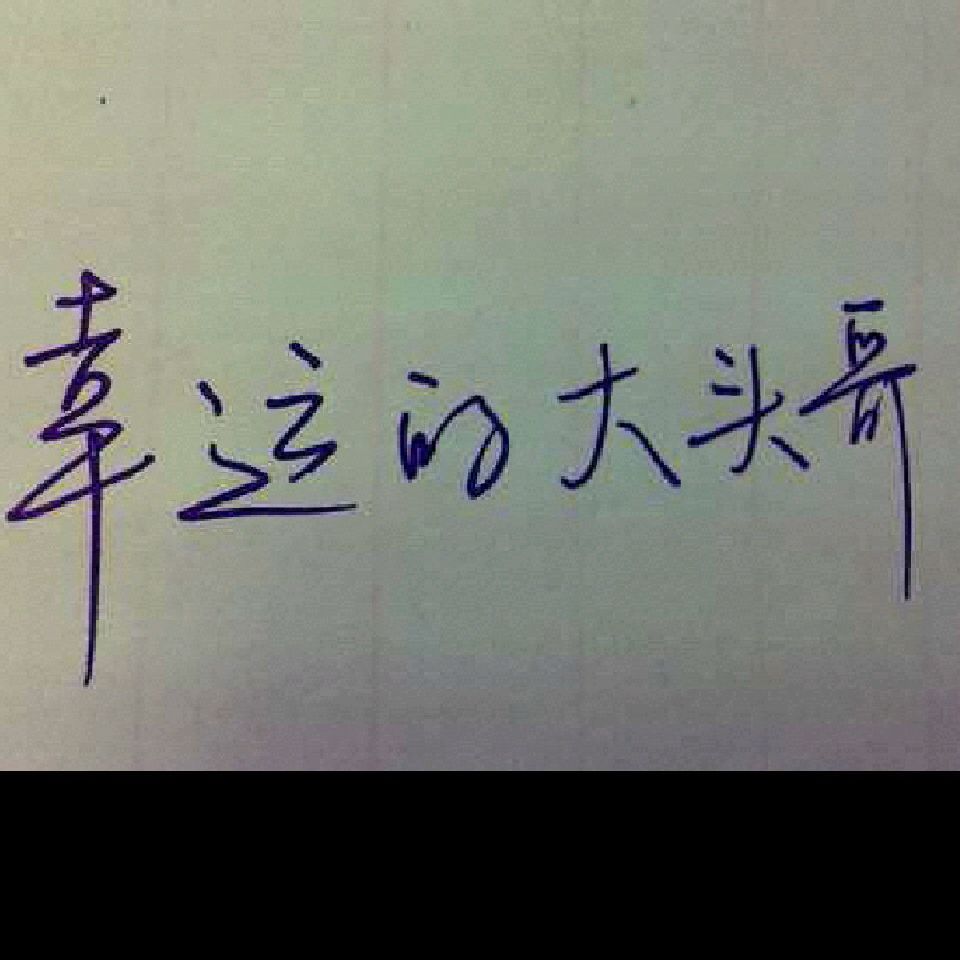 幸运的大头哥